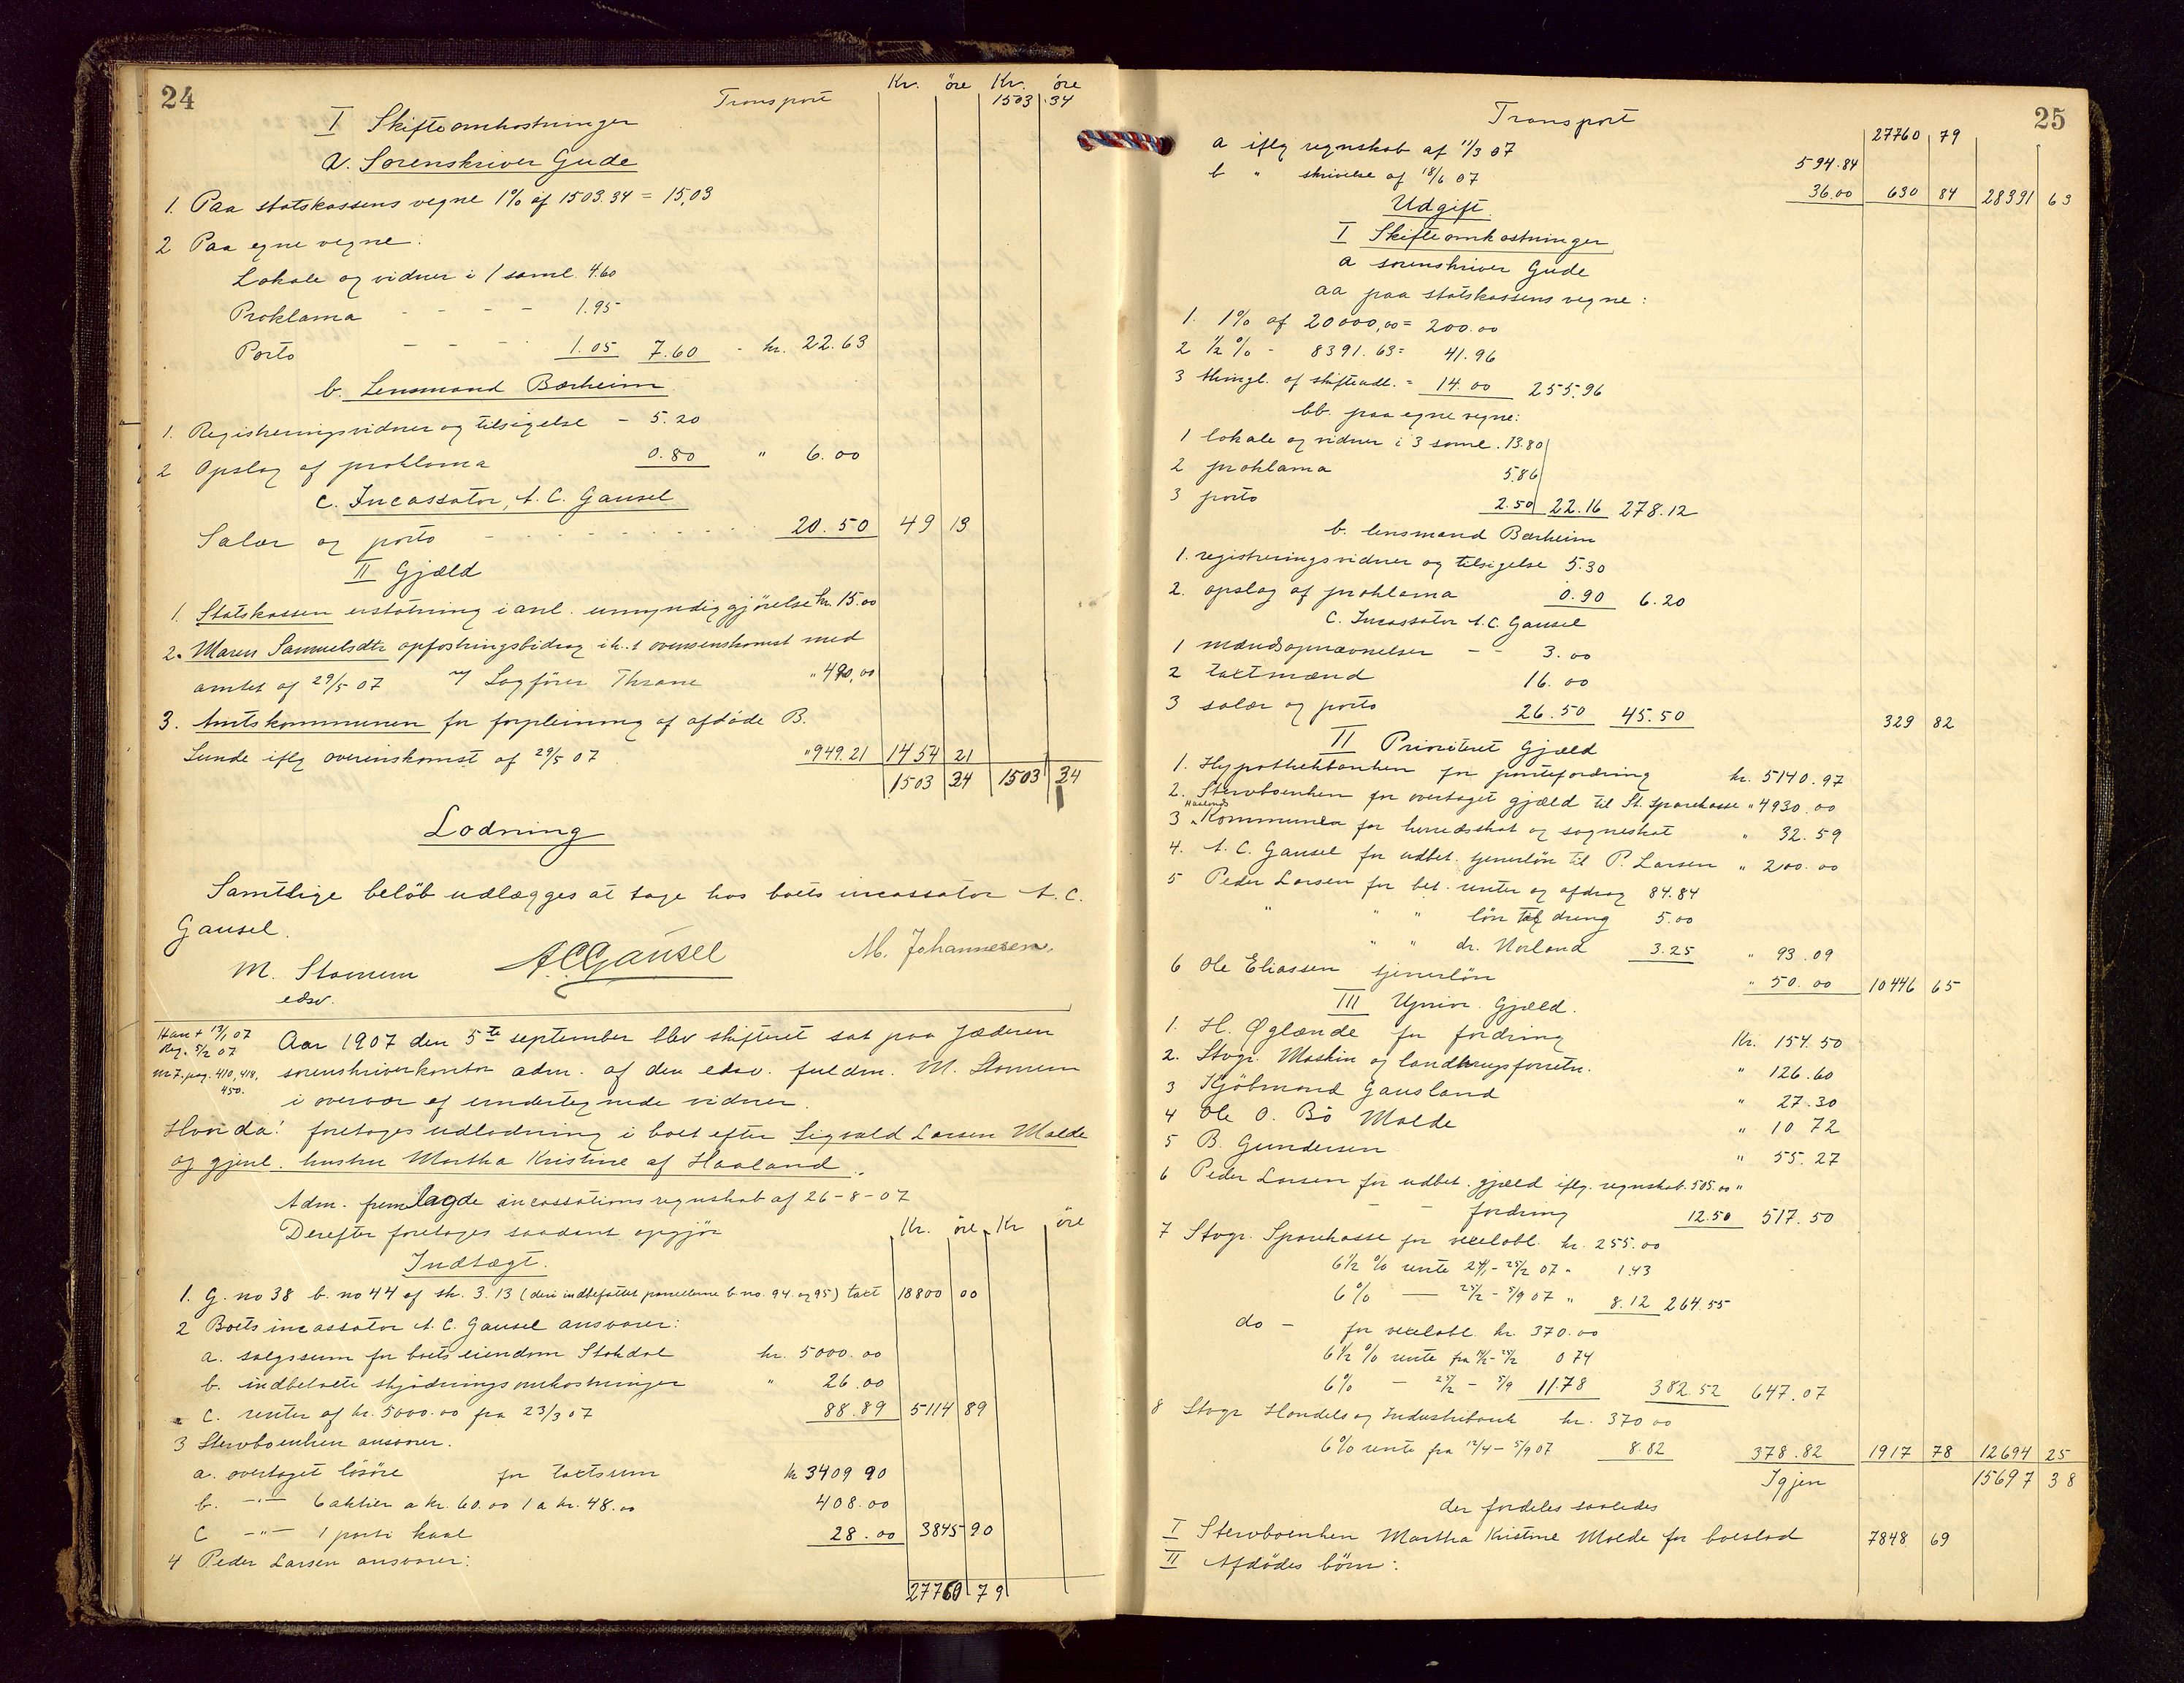 24
Kr. öre Kr. öre
Transport 1503 34
I Skifteomkostninger
a. Sorenskriver Gude
1. Paa statskassens vegne 1% af 1503.34 = 15,03
2 Paa egne vegne:
Lokale og vidner i 1 saml. 4.60
Proklama - - - - 1.95
Porto - - - 1.05 7.60 - kr. 22.63
b. Lensmand Bærheim
1. Registreringsvidner og tilsigelse - 5.20
2 Opslag af proklama 0.80 " 6.00
c. Incassator, A. C. Gausel
Salær og porto - - - - - - - 20.50 49 13
II Gjæld
1. Statskassen erstatning i anl. umyndiggjörelse kr. 15.00
2. Maren Samuelsdtr opfostringsbidrag ih.t overenskomst med
amtet af 29/5 07 v/ Sagförer Thrane " 490,00
3. Amtskommunen for forpleining af afdöde B.
Lunde iflg overenskomst af 29/5 07 " 949.21 1454 21
1503 34 1503 34
Lodning
Samtlige belöb udlægges at tage hos boets incassator A. C.
Gausel.
M. Stomum ACGausel M. Johannesen.
edsv.
Han + 13/1 07
Reg. 5/2 07
nr 7. pag. 410, 418,
450.
Aar 1907 den 5te september blev skifteret sat paa Jæderen
sorenskriverkontor adm. af den edsv. fuldm. M. Stomum
i overvær af undertegnede vidner.
Hvorda! foretoges udlodning i boet efter Sigvald Larsen Molde
og gjenl. hustru Martha Kristine af Haaland.
Adm. fremlagde incassationsregnskab af 26-8-07
Derefter foretoges saadant opgjör Kr. öre Kr öre
Indtægt.
1. G. no 38 b. no 44 af sk. 3.13 (deri indbefattet parcellerne b. no. 94 og 95) taxt 18800 00
2 Boets incassator A. C. Gausel ansvarer:
a. salgssum for boets eiendom Stokdal kr. 5000.00
b. indbetalte skjödningsomkostninger " 26.00
c. renter af kr. 5000.00 fra 23/3 07 88.89 5114 89
3 Stervboenken ansvarer.
a. overtaget lösöre for taxtsum kr 3409 90
b. -"- 6 aktier a kr. 60.00 1 a kr. 48.00 408.00
c -"- 1 parti kaal 28.00 3845 90
4 Peder Larsen ansvarer:
27760 79
25
Transport 27760 79
a iflg regnskab af 11/3 07 594.84
b " skrivelse af 18/6 07 36.00 630 84 28391 63
Udgift.
I Skifteomkostninger
a sorenskriver Gude
aa paa statskassens vegne:
1. 1% af 20000,00 = 200.00
2 1/2 % - 8391.63 = 41.96
3 thingl. af skifteudl. = 14.00 255.96
bb. paa egne vegne:
1 lokale og vidner i 3 saml. 13.80
2 proklama 5.86
3 porto 2.50 22.16 278.12
b. lensmand Bærheim
1. registreringsvidner og tilsigelse 5.30
2. opslag af proklama 0.90 6.20
c. Incassator A. C. Gausel
1 mandsopnævnelser - - 3.00
2 taxtmænd 16.00
3 salær og porto 26.50 45.50 329 82
II Prioritert Gjæld
1. Hypothekbanken for pantefordring kr. 5140.97
2. Stervboenken for overtaget gjæld til St. sparekasse " 4930.00
3 Haalands Kommune for herredsskat og sogneskat " 32.59
4. A. C. Gausel for udbet. tjenerlön til P. Larsen " 200.00
5 Peder Larsen for bet. renter og afdrag 84.84
" " " lön til dreng 5.00
" " dr. Norland 3.25 " 93.09
6 Ole Eliassen tjenerlön " 50.00 10446 65
III Uprior. Gjæld.
1. H. Øglænde for fordring Kr. 154.50
2. Stvgr. Maskin og landbrugsforretn. " 126.60
3 Kjöbmand Gausland " 27.30
4 Ole O. Bö Molde " 10 72
5 B. Gundersen " 55.27
6 Peder Larsen for udbet. gjæld iflg. regnskab. 505.00 "
- - fordring 12.50 517.50
7 Stvgr. Sparekasse for vexelobl. kr. 255.00
6 1/2 % rente 24/1 - 25/2 07 - 1.43
6% — 25/2 - 5/9 07 " 8.12 264.55
do - for vexelobl. kr. 370.00
6 1/2 % rente fra 14/2 - 25/2 0 74
6% - 25/2 - 5/9 11.78 382.52 647.07
8 Stvgr Handels og Industribank kr. 370 00
6% rente fra 12/4 - 5/9 07 8.82 378.82 1917 78 12694 25
Igjen 15697 38
der fordeles saaledes
I Stervboenken Martha Kristine Molde for boeslod 7848 69
II Afdödes börn: